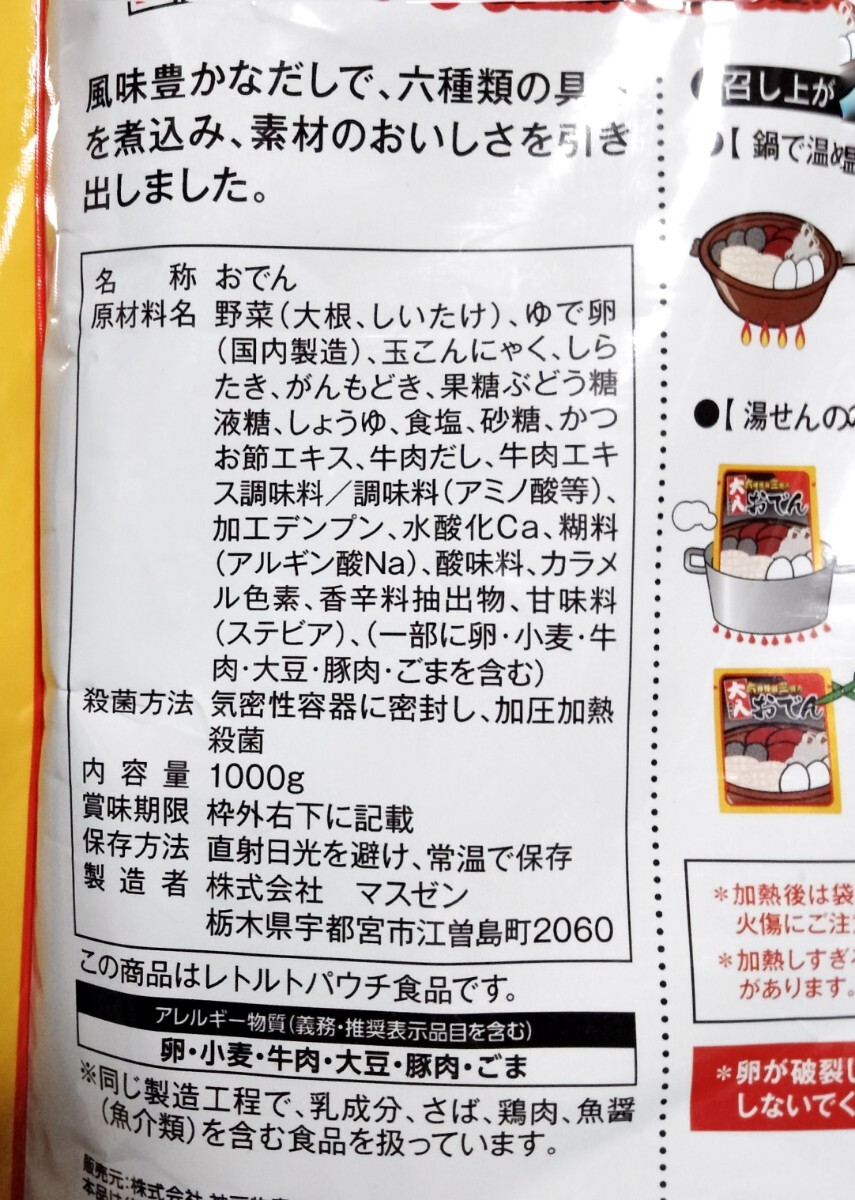 風味豊かなだしで、六種類の具
を煮込み、素材のおいしさを引き
出しました。
名称 おでん
原材料名 野菜(大根、しいたけ)、ゆで卵
(国内製造)、玉こんにゃく、しら
たき、がんもどき、果糖ぶどう糖
液糖、しょうゆ、食塩、砂糖、かつ
お節エキス、牛肉だし、牛肉エキ
ス調味料/調味料(アミノ酸等)、
加工デンプン、水酸化Ca、糊料
(アルギン酸Na)、酸味料、カラメ
ル色素、香辛料抽出物、甘味料
(ステビア)、(一部に卵・小麦・牛
肉・大豆・豚肉・ごまを含む)
殺菌方法 気密性容器に密封し、加圧加熱
殺菌
内容量 1000g
賞味期限 枠外右下に記載
保存方法 直射日光を避け、常温で保存
製造者 株式会社 マスゼン
栃木県宇都宮市江曽島町2060
この商品はレトルトパウチ食品です。
アレルギー物質(義務・推奨表示品目を含む)
卵・小麦・牛肉・大豆・豚肉・ごま
※同じ製造工程で、乳成分、さば、鶏肉、魚醤
(魚介類)を含む食品を扱っています。
販売元:株式会社
召し上が
●【鍋で温め
●【湯せんの
大入 おでん
大入 おでん
*加熱後は袋
火傷にご注
*加熱しすぎ
があります。
*卵が破裂し
しないでく